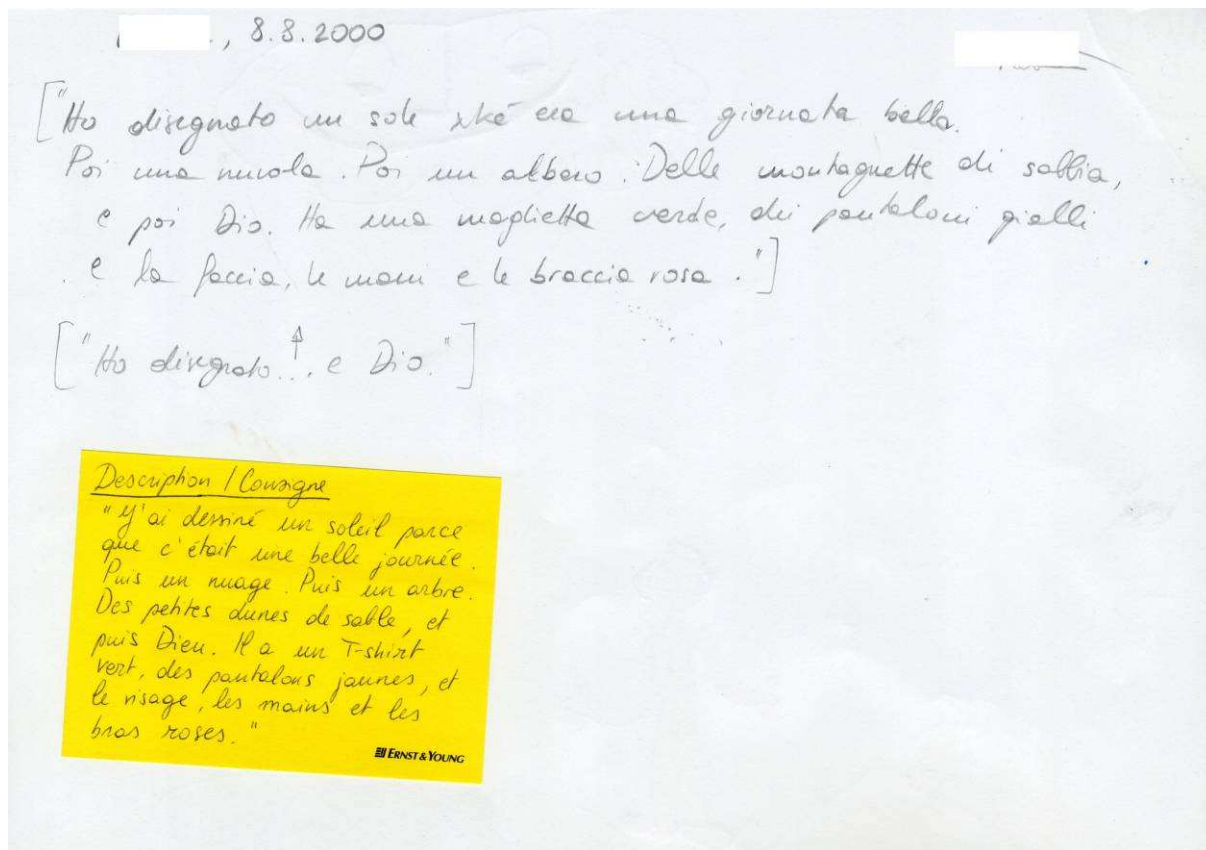 ., 8.8.2000
["Ho disegnato un sole xké era una giornata bella.
Poi una nuvola. Poi un albero. Delle montagnette di sabbia,
e poi Dio. Ha una maglietta verde, dei pantaloni gialli
e la faccia, le mani e le braccia rosa."]
["Ho disegnato... e Dio."]
Description / Consigne
"J'ai dessiné un soleil parce
que c'était une belle journée.
Puis un nuage. Puis un arbre.
Des petites dunes de sable, et
puis Dieu. Il a un T-shirt
vert, des pantalons jaunes, et
le visage, les mains et les
bras roses."
ERNST & YOUNG